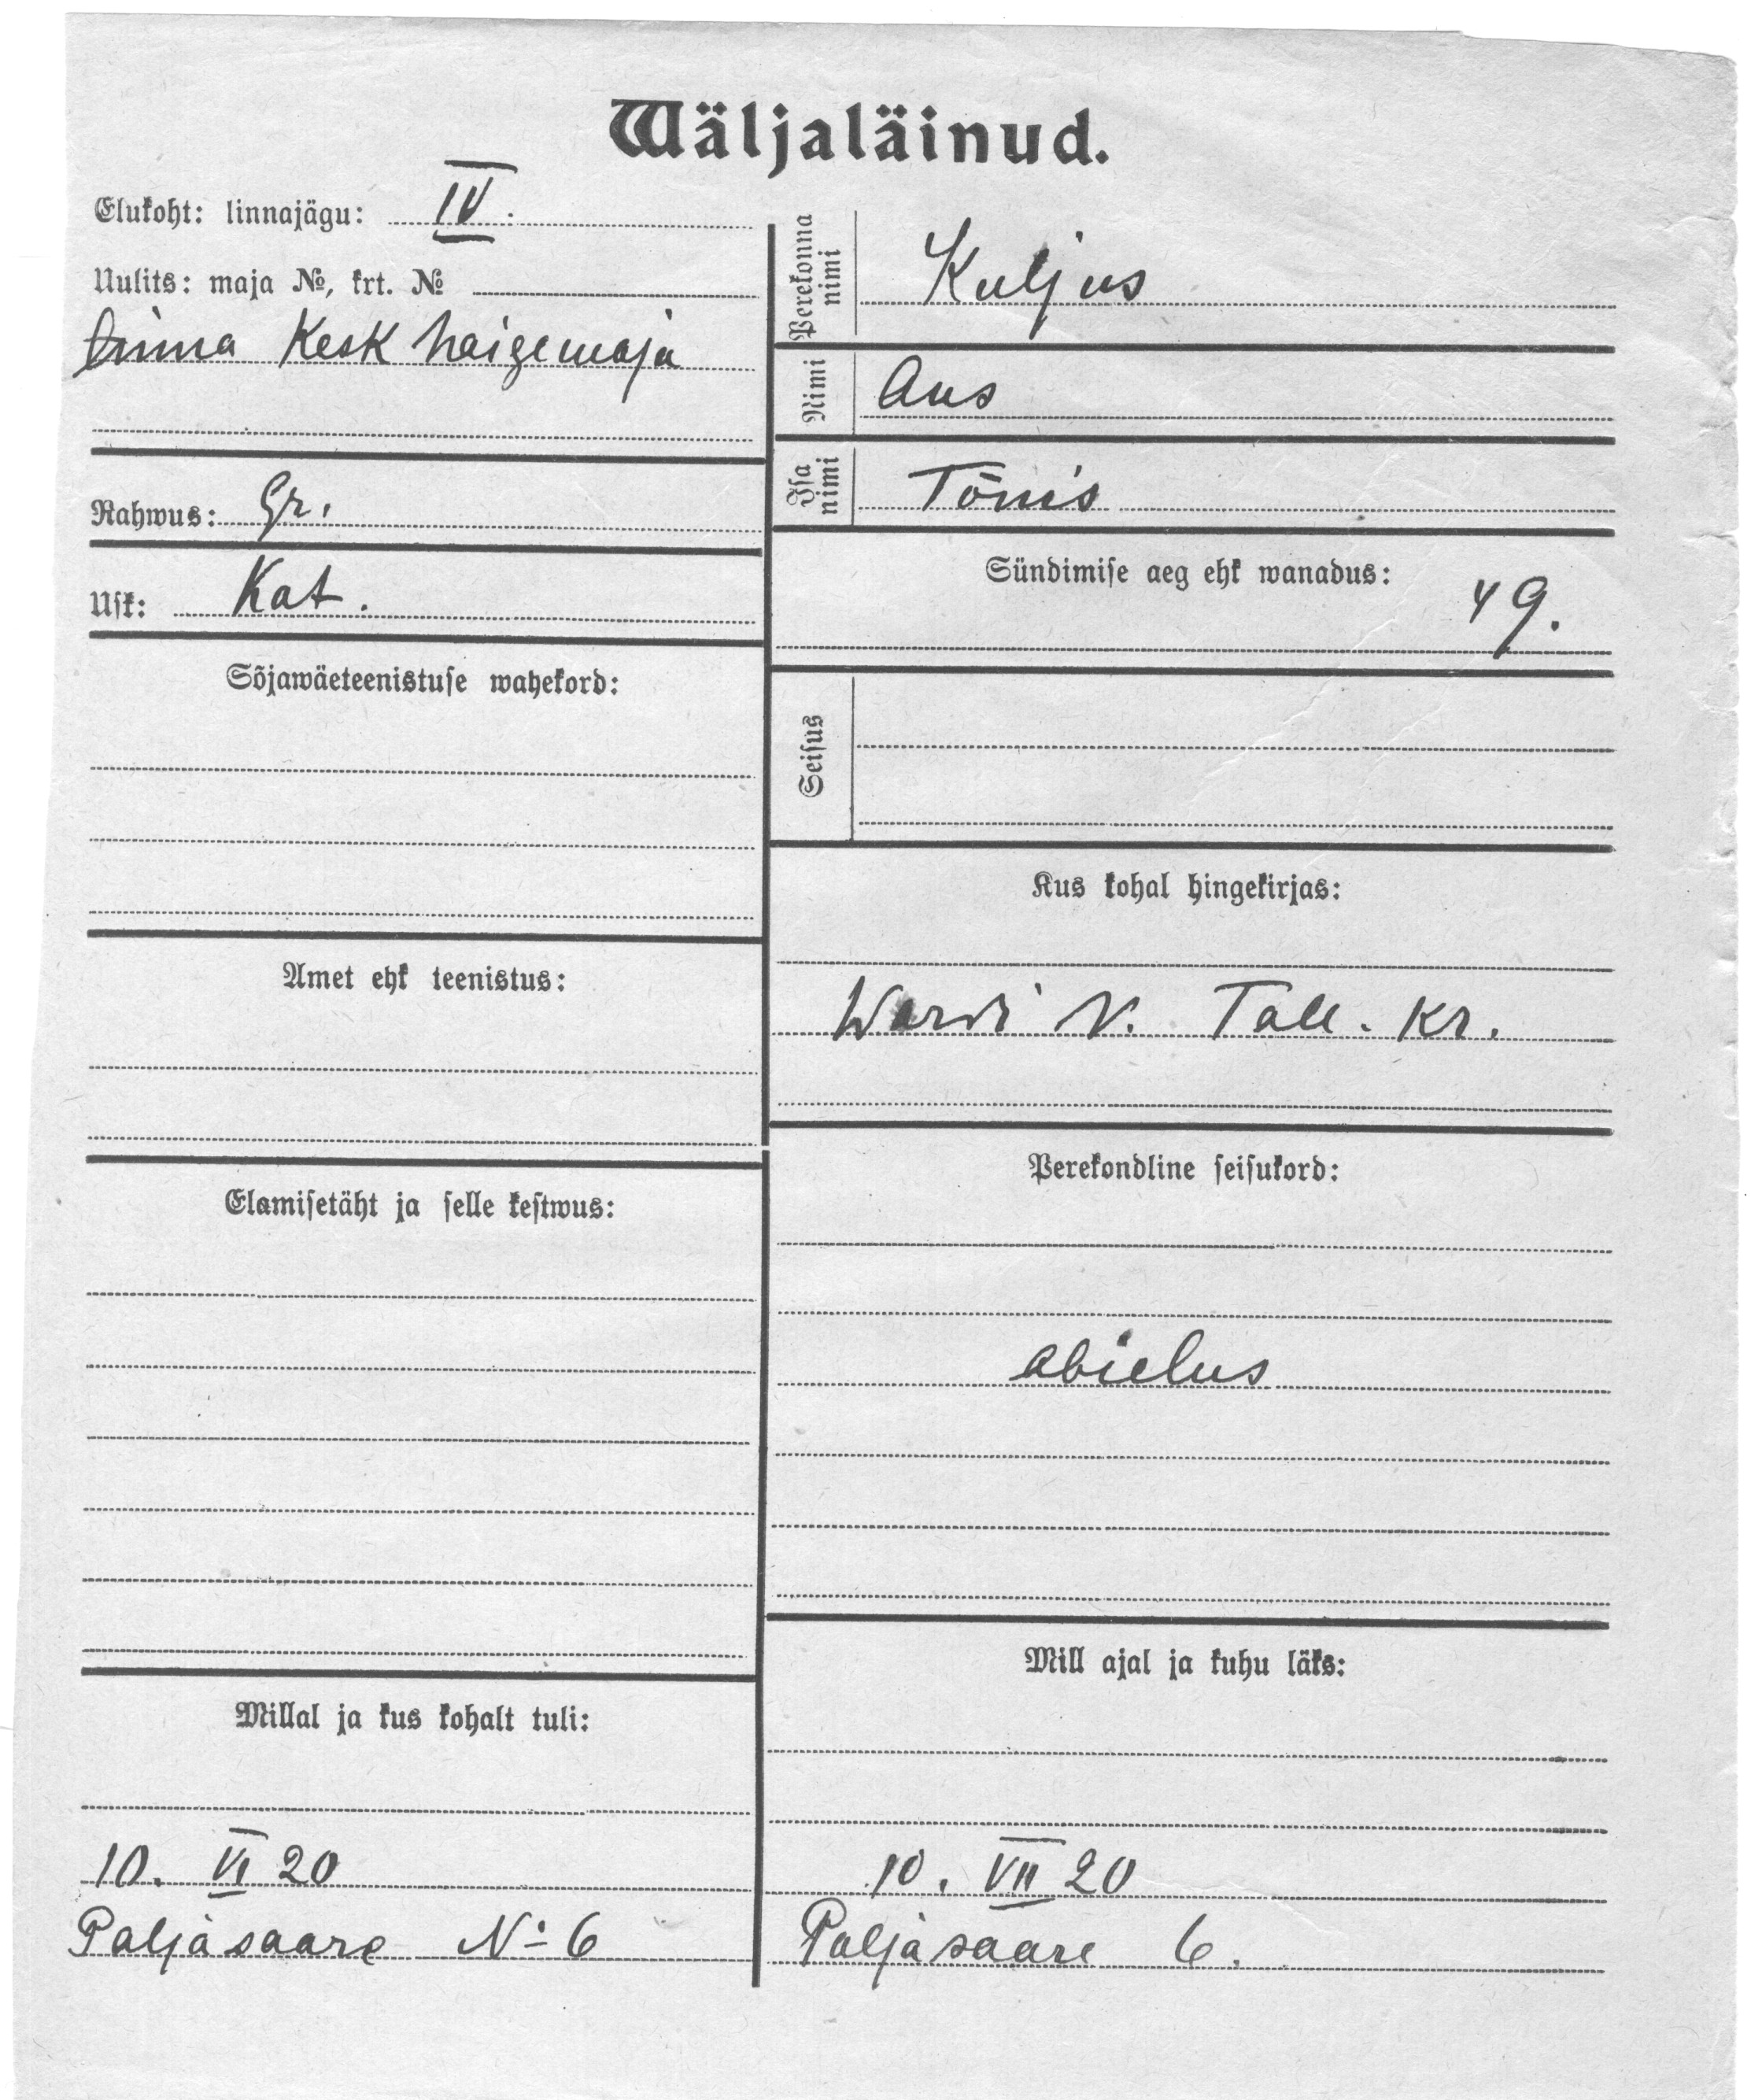 Wäljaläinud.
Elukoht: linnajägu: IV.
Uulits: maja №, krt. №
linna Kesk haigemaja
Rahwus:
Usk: Kat.
Sõjawäeteenistuse wahekord:
Amet ehk teenistus:
Elamisetäht ja selle kestwus:
Millal ja kus kohalt tuli:
10. VI 20
Paljasaare № 6
Perekonna nimi Kuljus
Nimi
Isa nimi Tõnis
Sündimise aeg ehk wanadus:
49.
Seisus
Kus kohal hingekirjas:
V. Tall. Kr.
Perekondline seisukord:
abielus
Mill ajal ja kuhu läks:
10. VII 20
Paljasaare 6.